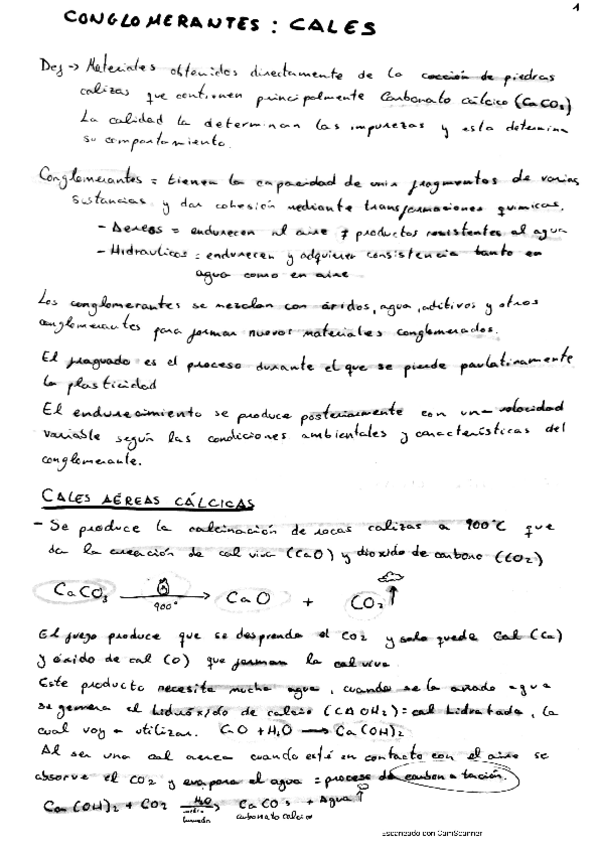 1
CONGLOMERANTES: CALES
Def -> Materiales obtenidos directamente de la cocción de piedras
calizas que contienen principalmente Carbonato cálcico (CaCO3)
La calidad la determinan las impurezas y esta determina
su comportamiento.
Conglomerantes = tienen la capacidad de unir fragmentos de varias
sustancias y dar cohesión mediante transformaciones químicas.
- Aereos = endurecen al aire ≠ productos resistentes al agua
- Hidraulicos = endurecen y adquieren consistencia tanto en
agua como en aire
Los conglomerantes se mezclan con áridos, agua, aditivos y otros
conglomerantes para formar nuevos materiales conglomerados.
El fraguado es el proceso durante el que se pierde paulatinamente
la plasticidad
El endurecimiento se produce posteriormente con una velocidad
variable según las condiciones ambientales y características del
conglomerante.
CALES AÉREAS CÁLCICAS
- Se produce la calcinación de rocas calizas a 900°C que
da la creación de cal viva (CaO) y dioxido de carbono (CO2)
CaCO3 900° → CaO + CO2 ↑
El fuego produce que se desprenda el CO2 y solo quede Cal (Ca)
y óxido de cal (O) que forman la cal viva
Este producto necesita mucha agua, cuando se la añade agua
se genera el hidróxido de calcio (CAOH2) = cal hidratada, la
cual voy a utilizar. CaO + H2O → Ca(OH)2
Al ser una cal aerea cuando esté en contacto con el aire se
absorve el CO2 y evapora el agua = proceso de carbonatación.
Ca(OH)2 + CO2 H2O → CaCO3 + Agua ↑
carbonato calcico
Escaneado con CamScanner